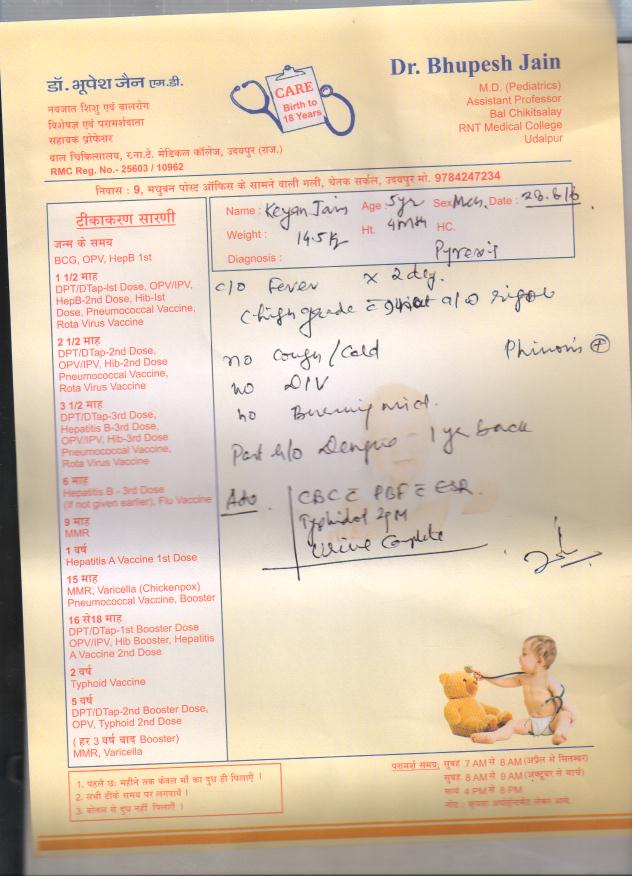 डॉ. भूपेश जैन एम.डी.
नवजात शिशु एवं बालरोग
विशेषज्ञ एवं परामर्शदाता
सहायक प्रोफेसर
बाल चिकित्सालय, र.ना.टे. मेडिकल कॉलेज, उदयपुर (राज.)
RMC Reg. No.- 25603 / 10962
CARE
Birth to
18 Years
Dr. Bhupesh Jain
M.D. (Pediatrics)
Assistant Professor
Bal Chikitsalay
RNT Medical College
Udaipur
निवास : 9, मधुबन पोस्ट ऑफिस के सामने वाली गली, चेतक सर्कल, उदयपुर मो. 9784247234
टीकाकरण सारणी
जन्म के समय
BCG, OPV, HepB 1st
1 1/2 माह
DPT/DTap-Ist Dose, OPV/IPV,
HepB-2nd Dose, Hib-Ist
Dose, Pneumococcal Vaccine,
Rota Virus Vaccine
2 1/2 माह
DPT/DTap-2nd Dose,
OPV/IPV, Hib-2nd Dose
Pneumococcal Vaccine,
Rota Virus Vaccine
3 1/2 माह
DPT/DTap-3rd Dose,
Hepatitis B-3rd Dose,
OPV/IPV, Hib-3rd Dose
Pneumococcal Vaccine,
Rota Virus Vaccine
6 माह
Hepatitis B - 3rd Dose
(If not given earlier), Flu Vaccine
9 माह
MMR
1 वर्ष
Hepatitis A Vaccine 1st Dose
15 माह
MMR, Varicella (Chickenpox)
Pneumococcal Vaccine, Booster
16 से18 माह
DPT/DTap-1st Booster Dose
OPV/IPV, Hib Booster, Hepatitis
A Vaccine 2nd Dose
2 वर्ष
Typhoid Vaccine
5 वर्ष
DPT/DTap-2nd Booster Dose,
OPV, Typhoid 2nd Dose
( हर 3 वर्ष बाद Booster)
MMR, Varicella
Name : Keyan Jain Age : 5yr Sex Date : 28.6/6
Weight : 14.5 kg Ht. HC.
Diagnosis : Pyrexia
c/o Fever x 2 day.
High grade c̄ a/w rigor
no Cough / Cold Phimosis +
no D/V
no Burning mict.
Past h/o Dengue - 1 yr back
Adv. CBC c̄ PBF c̄ ESR.
Typhidot IgM
Urine Complete
1. पहले छः महीने तक केवल माँ का दुध ही पिलाएँ ।
2. सभी टीके समय पर लगवायें ।
3. बोतल से दुध नहीं पिलाएँ ।
परामर्श समय: सुबह 7 AM से 8 AM (अप्रैल से सितम्बर)
सुबह 8 AM से 9 AM (अक्टूबर से मार्च)
सायं 4 PM से 8 PM
नोट : कृपया अपोईन्टमेंट लेकर आवे.